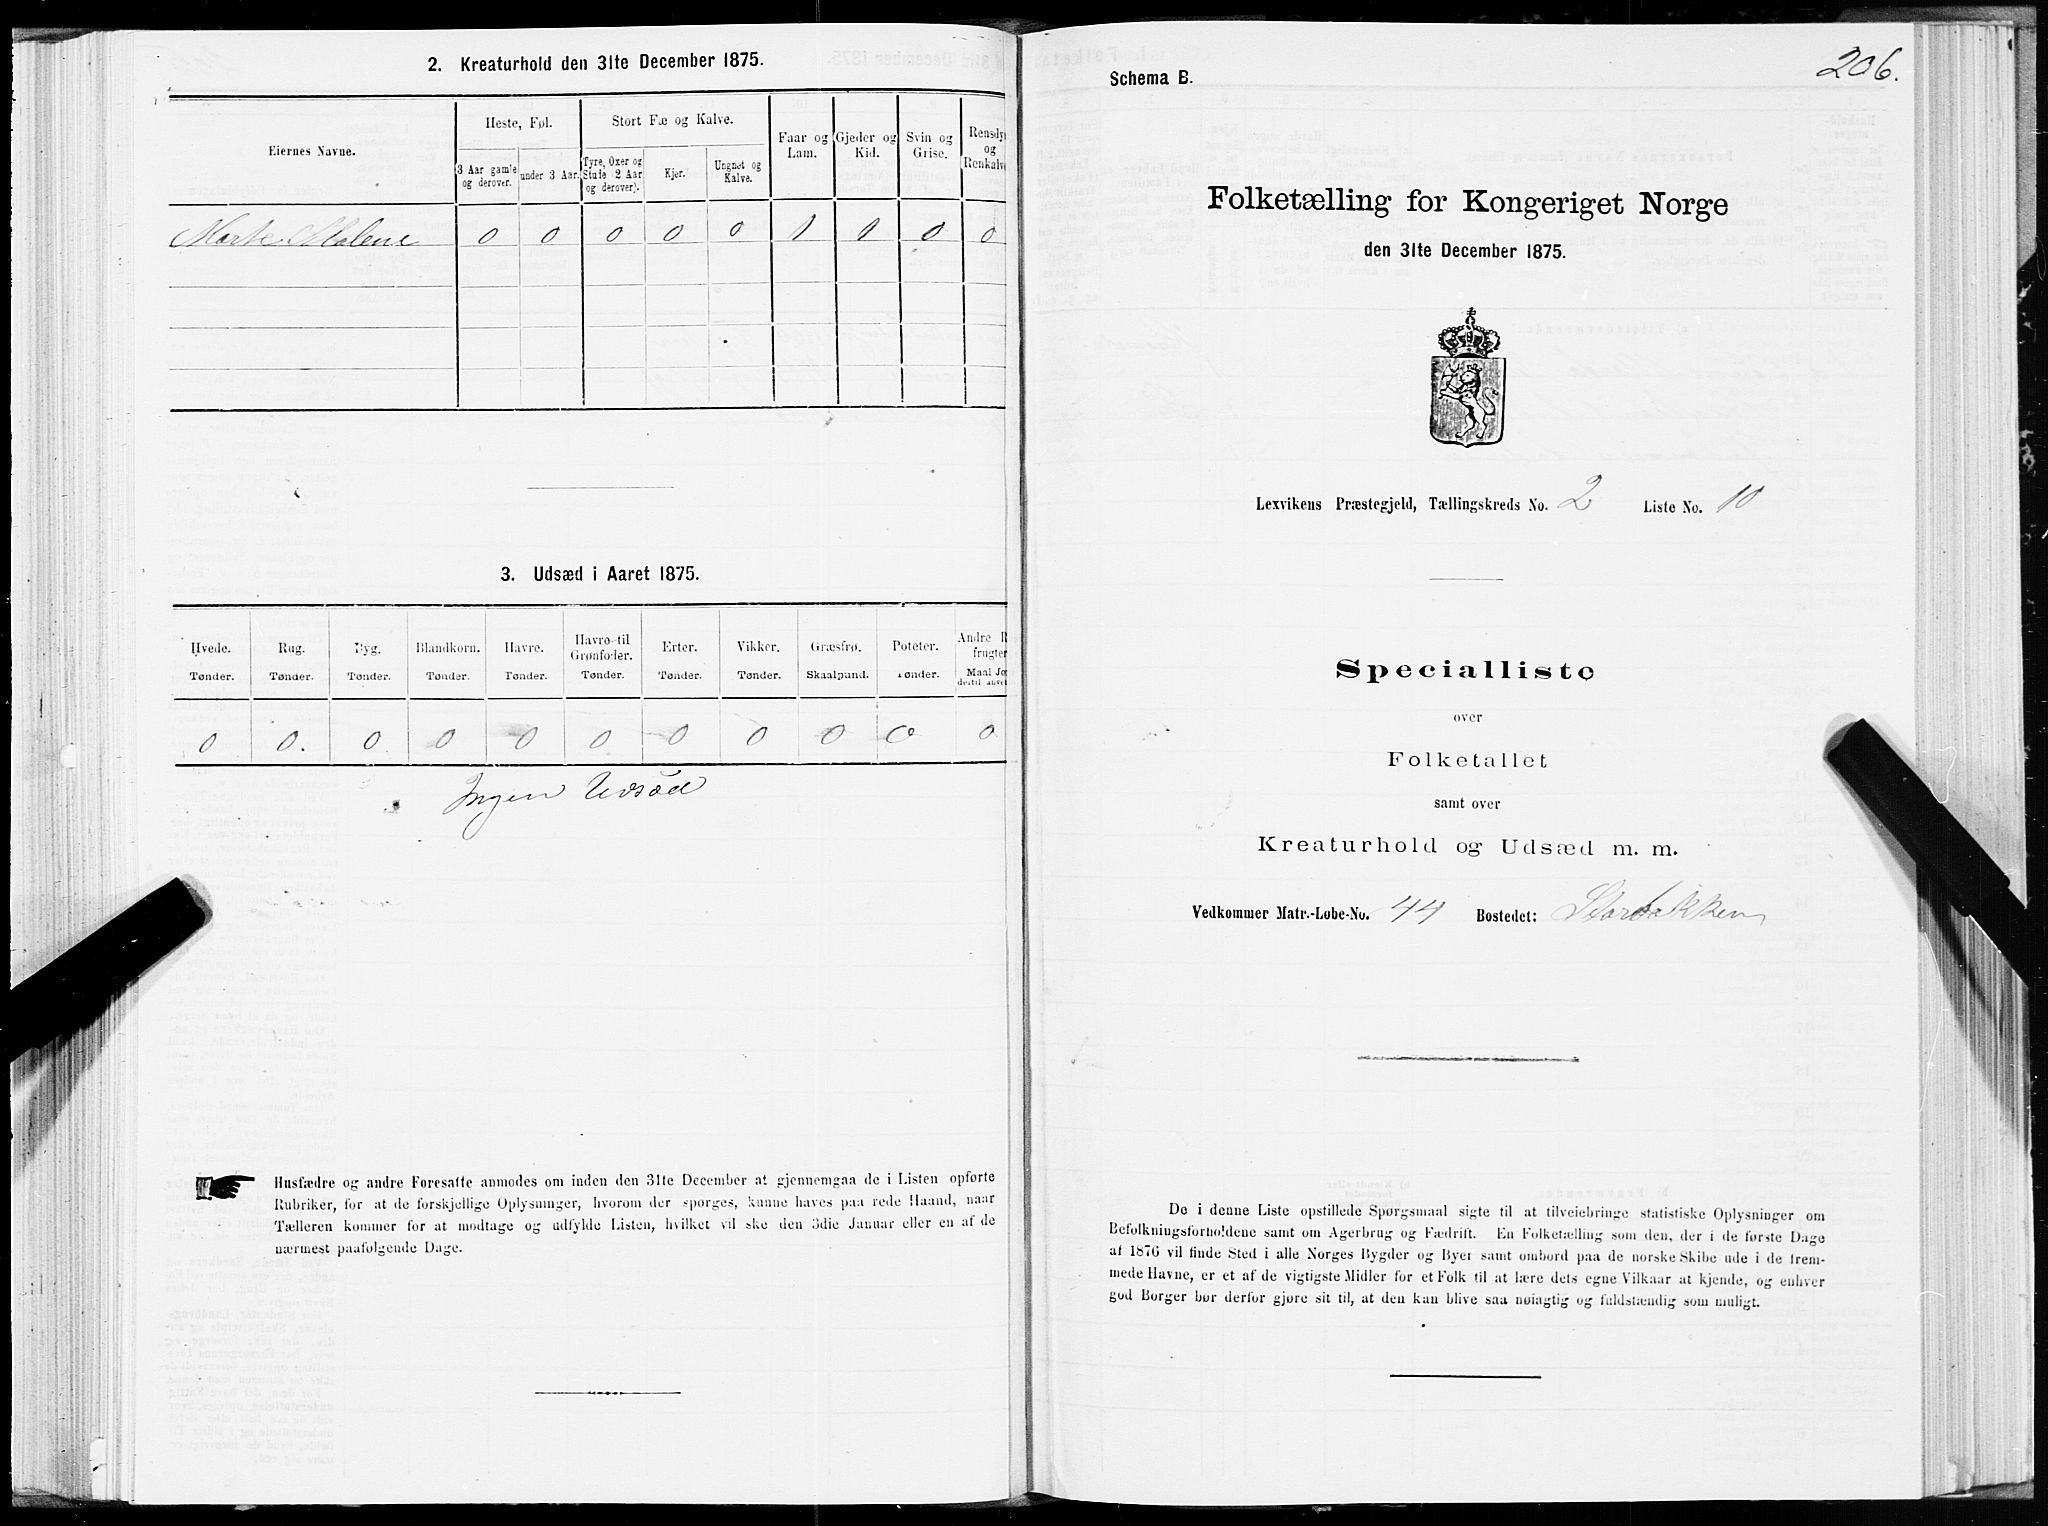 2. Kreaturhold den 31te December 1875.
Eiernes Navne.
Heste, Føl.
Stort Fæ og Kalve.
Faar og Lam.
Gjeder og Kid.
Svin og Grise.
Rensdy og Renkalve
3 Aar gamle og derover.
under 3 Aar.
Tyre, Oxer og Stude 2 Aar og derover).
Kjer.
Ungnet og Kalve.
Marte Malene 0 0 0 0 0 1 1 0 0
3. Udsæd i Aaret 1875.
Hvede. Rug. Byg. Blandkorn. Havre. Havre til Grønfoder. Erter. Vikker. Græsfrø. Poteter. Andre R frugter
Tønder. Tønder. Tønder. Tønder. Tønder. Tønder. Tønder. Tønder. Skaalpund. Tønder. Maal Jo
0 0. 0 0 0 0 0 0 0 0 0
Ingen Udsæd
Husfædre og andre Foresatte anmodes om inden den 31te December at gjennemgaa de i Listen opførte
Rubriker, for at de forskjellige Oplysninger, hvorom der spørges, kunne haves paa rede Haand, naar
Tælleren kommer for at modtage og udfylde Listen, hvilket vil ske den 3die Januar eller en af de
nærmest paafølgende Dage.
206.
Schema B.
Folketælling for Kongeriget Norge
den 31te December 1875.
Lexvikens Præstegjeld, Tællingskreds No. 2 Liste No. 10
Specialliste
over
Folketallet
samt over
Kreaturhold og Udsæd m. m.
Vedkommer Matr.-Løbe-No. 44 Bostedet: Storbakken
De i denne Liste opstillede Spørgsmaal sigte til at tilveiebringe statistiske Oplysninger om
Befolkningsforholdene samt om Agerbrug og Fædrift. En Folketælling som den, der i de første Dage
af 1876 vil finde Sted i alle Norges Bygder og Byer samt ombord paa de norske Skibe ude i de frem-
mede Havne, er et af de vigtigste Midler for et Folk til at lære dets egne Vilkaar at kjende, og enhver
god Borger bør derfor gjøre sit til, at den kan blive saa nøiagtig og fuldstændig som muligt.